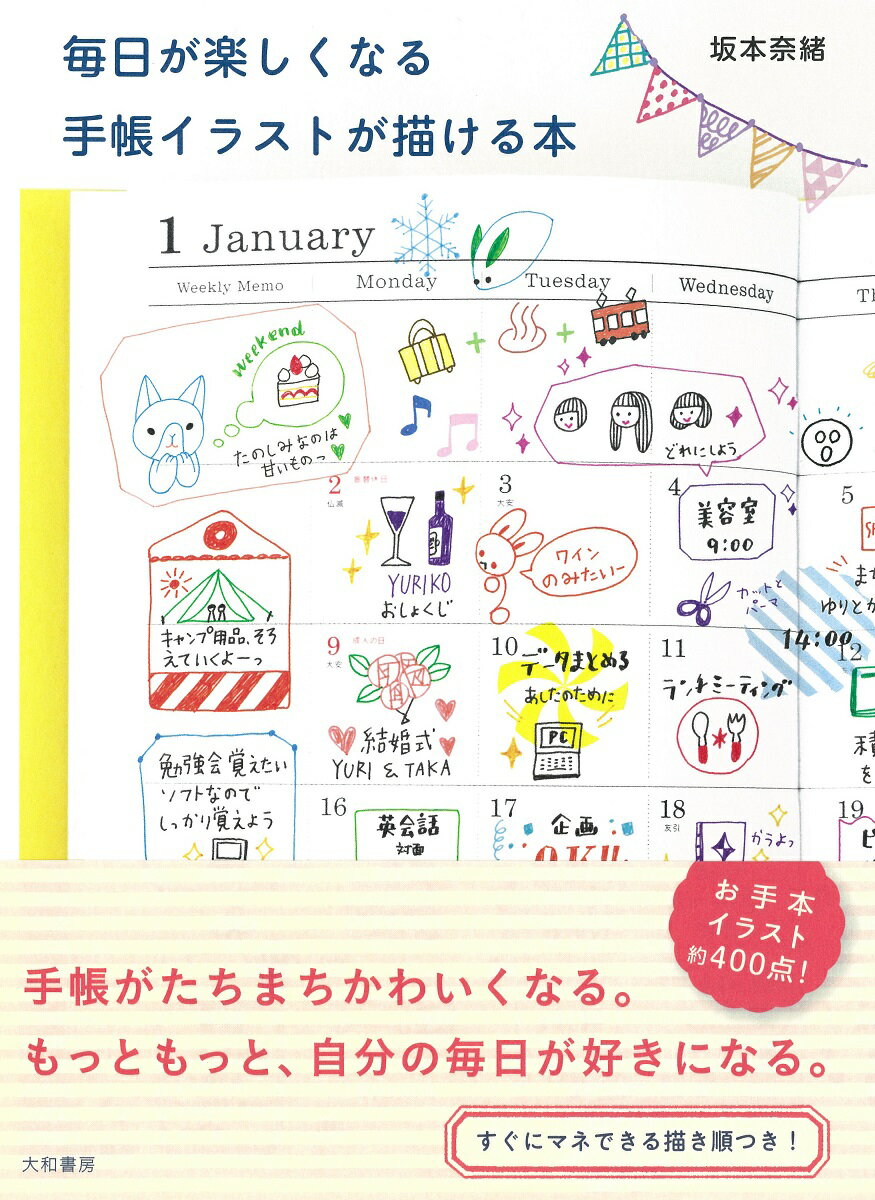 毎日が楽しくなる
手帳イラストが描ける本
坂本奈緒
1 January
Weekly Memo
Monday
Tuesday
Wednesday
Th
weekend
たのしみなのは
甘いものっ
どれにしよう
2 振替休日
仏滅
YURIKO
おしょくじ
3
大安
ワイン
のみたいー
4
美容室
9:00
カットと
パーマ
5
ゆりとか
14:00
キャンプ用品、そろ
えていくよーっ
9 成人の日
大安
結婚式
YURI & TAKA
10
データまとめる
あしたのために
PC
11
ランチミーティング
12
積
を
勉強会 覚えたい
ソフトなので
しっかり覚えよう
16
英会話
対面
17
企画
OK!!
18
友引
かうよっ
19
ピ
お手本
イラスト
約400点!
手帳がたちまちかわいくなる。
もっともっと、自分の毎日が好きになる。
すぐにマネできる描き順つき!
大和書房